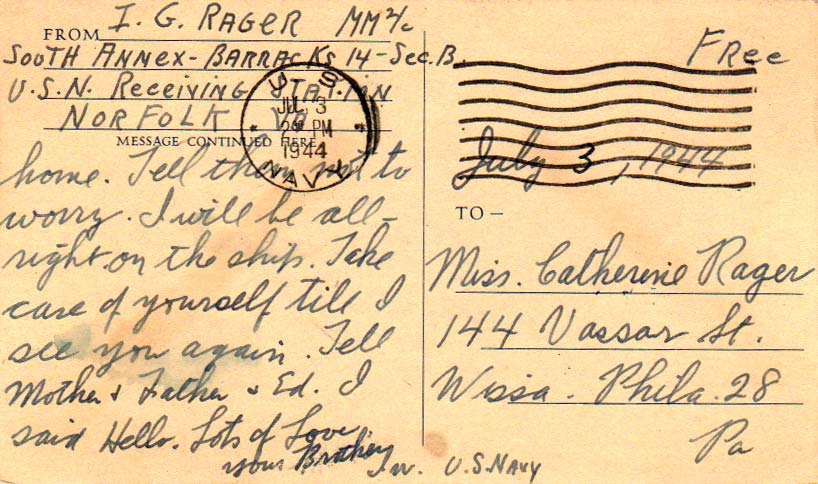 FROM I. G. RAGER MM 2/c
SOUTH ANNEX - BARRACKS 14 - Sec. B.
U.S.N. Receiving STATION
NORFOLK VA
MESSAGE CONTINUED HERE
U S
JUL 3
PM
1944
NAVY
Free
July 3, 1944
home. Tell them not to
worry. I will be all-
right on the ship. Take
care of yourself till I
see you again. Tell
Mother & Father & Ed. I
said Hello. Lots of Love
your Brother
Irv. U.S. Navy
TO –
Miss. Catherine Rager
144 Vassar St.
Wissa. Phila. 28
Pa